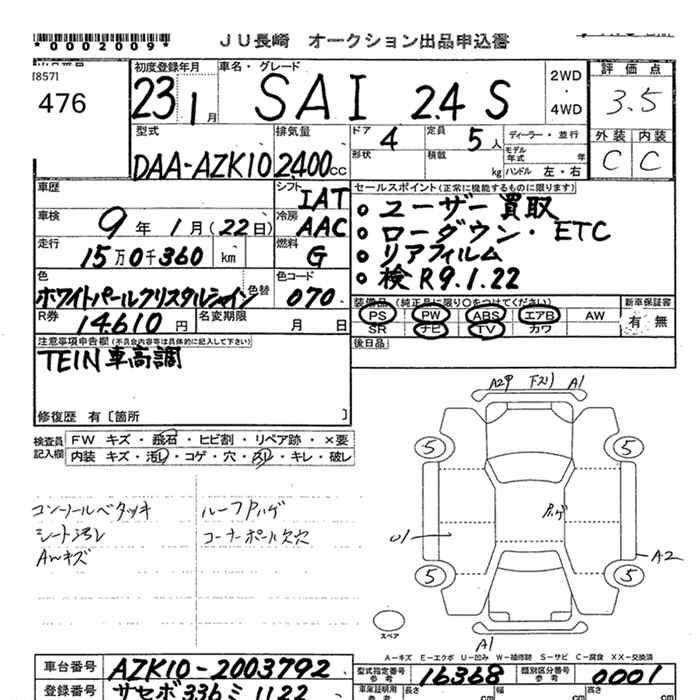 *0002009*
JU長崎 オークション出品申込書
[857]
476
初度登録年月 23年 1月
車名・グレード SAI 2.4 S
2WD・4WD
評価点 3.5
外装 C 内装 C
型式 DAA-AZK10
排気量 2400cc
ドア 4
定員 5人
形状
積載 kg
ディーラー・並行
モデル年式 年
ハンドル 左・右
車歴
シフト IAT
車検 9年1月(22日)
冷房 AAC
走行 15万0千360 km
燃料 G
色 ホワイトパールクリスタルシャイン
色替
色コード 070
R券 14,610円
名変期限 月 日
セールスポイント(正常に機能するものに限ります)
○ ユーザー買取
○ ローダウン・ETC
○ リアフィルム
○ 検R9.1.22
装備品(純正品に限り○をつけてください)
PS PW ABS エアB AW
SR ナビ TV カワ
新車保証書 有 無
後日品
注意事項申告欄(不具合内容等は具体的に記入して下さい)
TEIN車高調
修復歴 有〔箇所 〕
検査員記入欄
FW キズ・飛石・ヒビ割・リペア跡・×要
内装 キズ・汚レ・コゲ・穴・スレ・キレ・破レ
コンソールベタツキ
シート汚レ
AWキズ
ルーフハゲ
コーナーポール欠穴
A2P 下スリ A1
5 5
ハゲ
U1
A2
5 5
スペア
A1
A-キズ E-エクボ U-凹み W-補修跡 S-サビ C-腐食 XX-交換済
車台番号 AZK10-2003792
型式指定番号 参考 16368
類別区分番号 参考 0001
登録番号 サセボ 336 ミ 1122
車庫証明用 参考 長さ cm 幅 cm 高さ cm